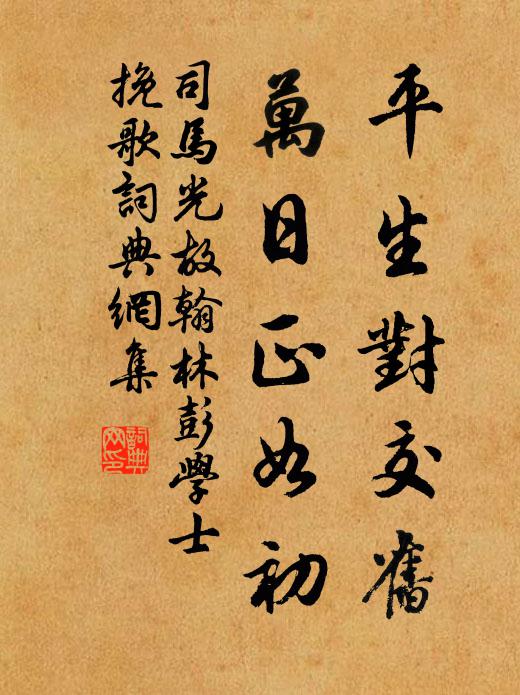 平生對交舊
萬日正如初
司馬光故翰林彭學士
挽歌詞典網集
詞典網印